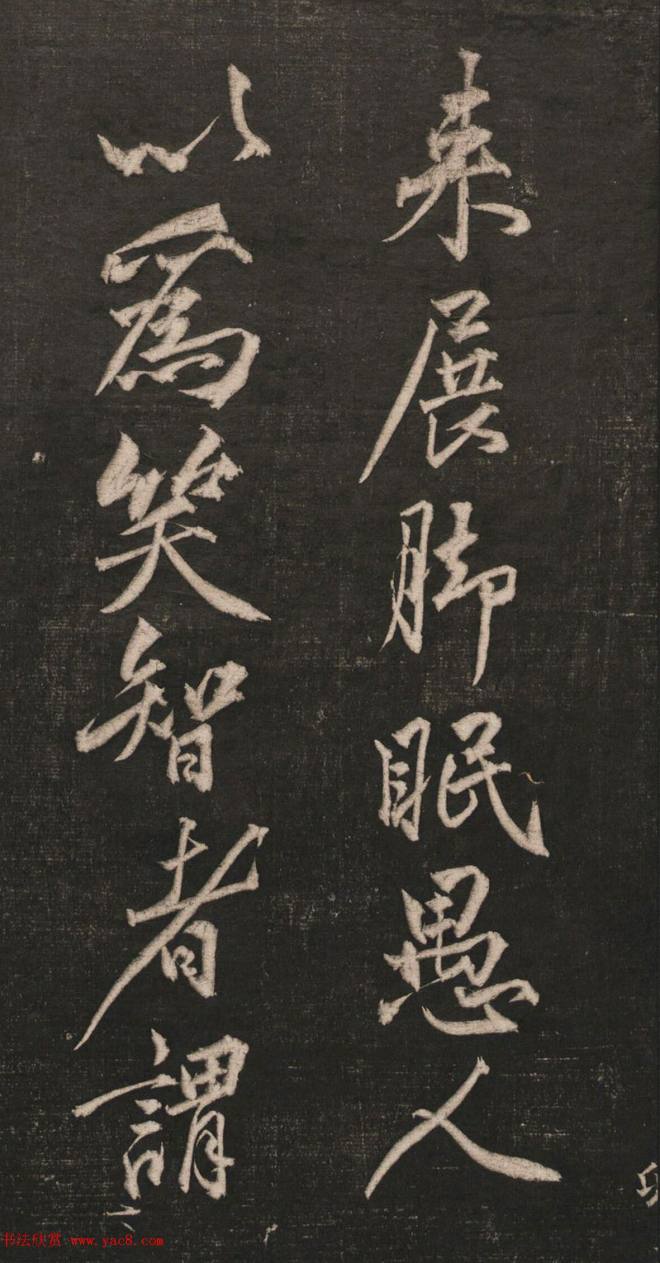 来展脚眠愚人
以為笑智者謂
书法欣赏:www.yac8.com